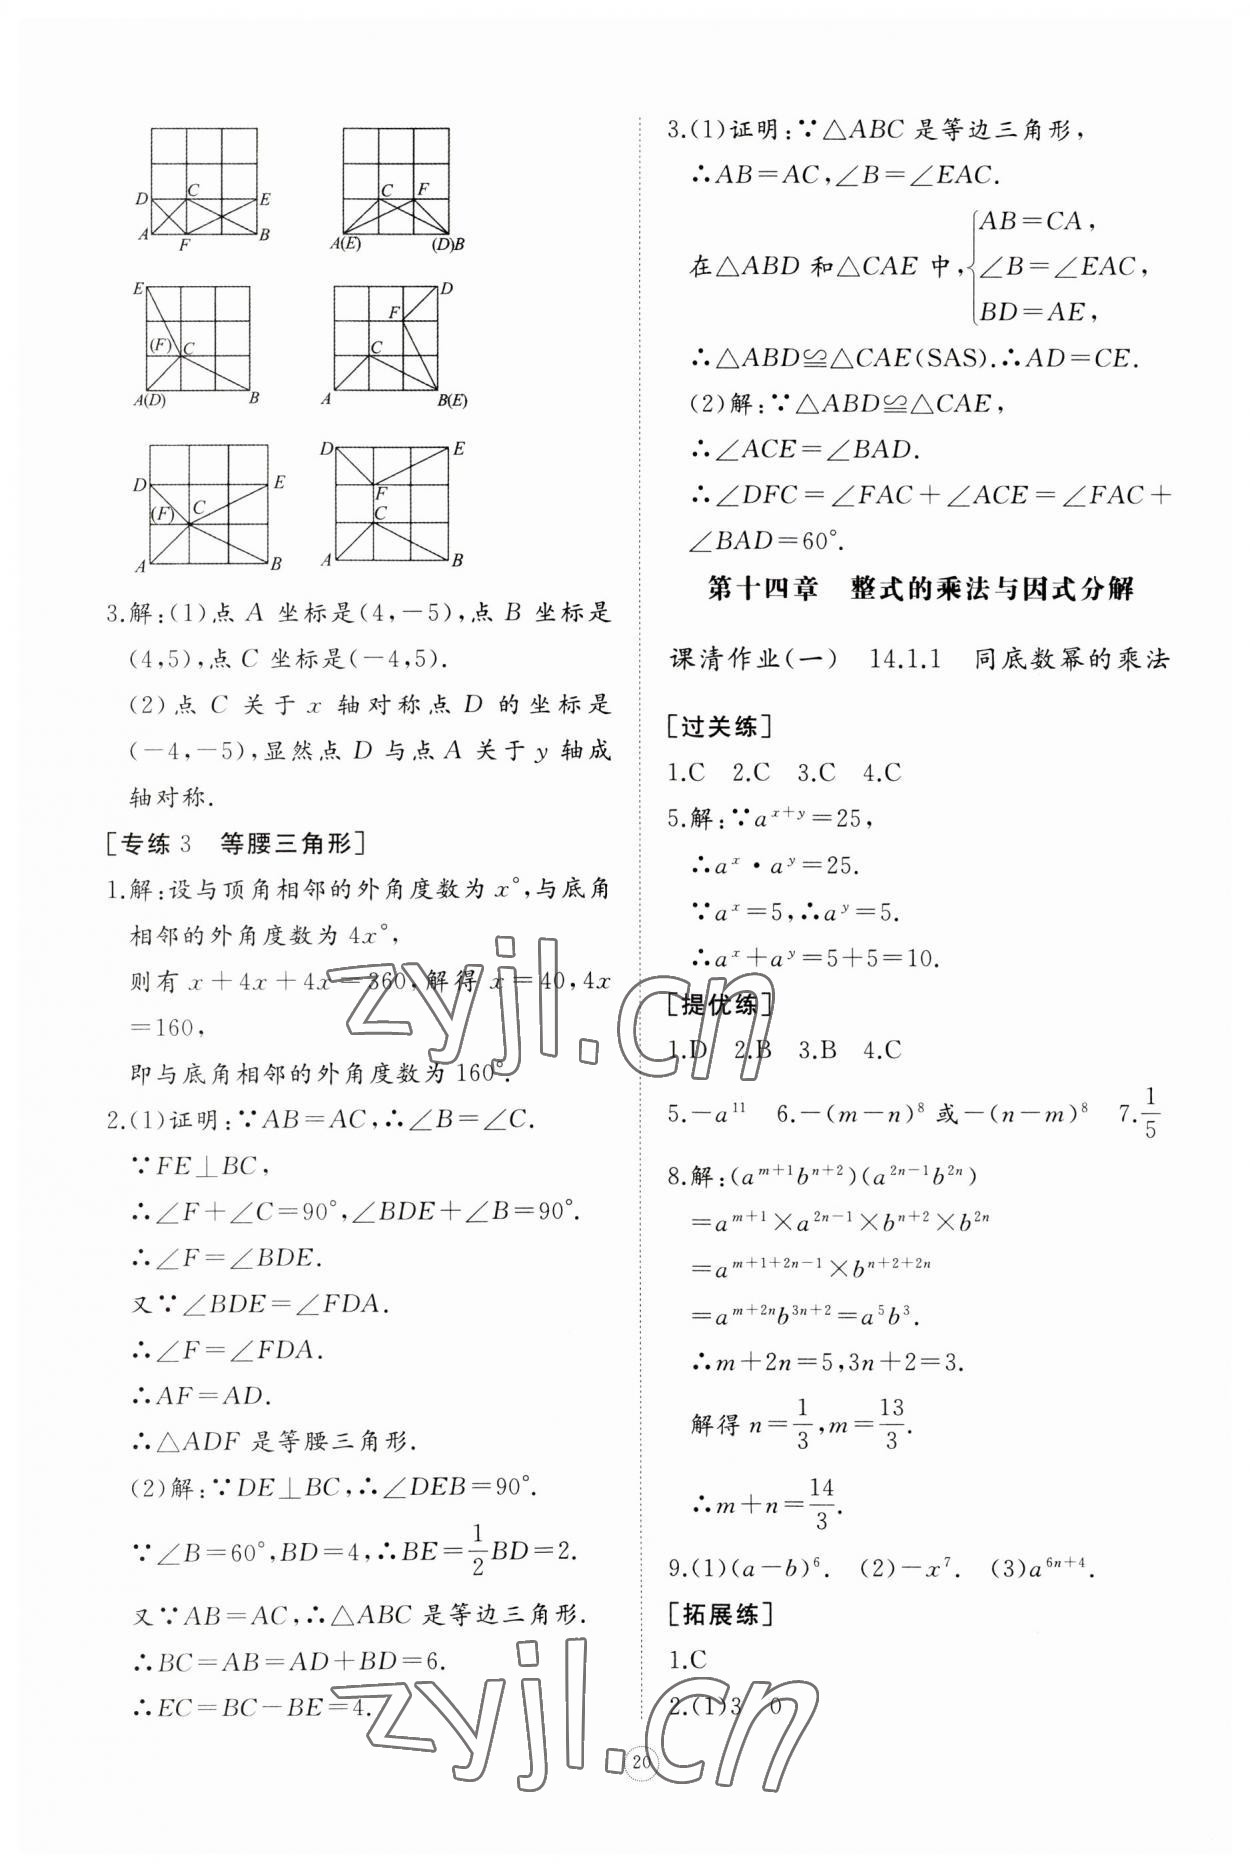 D C E
A F B
C F
A(E) (D)B
E
(F) C
A(D) B
D
F
C
A B(E)
D E
(F) C
A B
D E
F
C
A B
3.解:(1)点 A 坐标是(4,-5),点 B 坐标是
(4,5),点 C 坐标是(-4,5).
(2)点 C 关于 x 轴对称点 D 的坐标是
(-4,-5),显然点 D 与点 A 关于 y 轴成
轴对称.
[专练3 等腰三角形]
1.解:设与顶角相邻的外角度数为 x°,与底角
相邻的外角度数为 4x°,
则有 x+4x+4x=360,解得 x=40,4x
=160,
即与底角相邻的外角度数为160°.
2.(1)证明:∵AB=AC,∴∠B=∠C.
∵FE⊥BC,
∴∠F+∠C=90°,∠BDE+∠B=90°.
∴∠F=∠BDE.
又∵∠BDE=∠FDA.
∴∠F=∠FDA.
∴AF=AD.
∴△ADF 是等腰三角形.
(2)解:∵DE⊥BC,∴∠DEB=90°.
∵∠B=60°,BD=4,∴BE=1/2BD=2.
又∵AB=AC,∴△ABC 是等边三角形.
∴BC=AB=AD+BD=6.
∴EC=BC-BE=4.
3.(1)证明:∵△ABC 是等边三角形,
∴AB=AC,∠B=∠EAC.
在△ABD 和△CAE 中,{AB=CA,
∠B=∠EAC,
BD=AE,
∴△ABD≌△CAE(SAS).∴AD=CE.
(2)解:∵△ABD≌△CAE,
∴∠ACE=∠BAD.
∴∠DFC=∠FAC+∠ACE=∠FAC+
∠BAD=60°.
第十四章 整式的乘法与因式分解
课清作业(一) 14.1.1 同底数幂的乘法
[过关练]
1.C 2.C 3.C 4.C
5.解:∵a^{x+y}=25,
∴a^x·a^y=25.
∵a^x=5,∴a^y=5.
∴a^x+a^y=5+5=10.
[提优练]
1.D 2.B 3.B 4.C
5.-a^{11} 6.-(m-n)^8 或-(n-m)^8 7.1/5
8.解:(a^{m+1}b^{n+2})(a^{2n-1}b^{2n})
=a^{m+1}×a^{2n-1}×b^{n+2}×b^{2n}
=a^{m+1+2n-1}×b^{n+2+2n}
=a^{m+2n}b^{3n+2}=a^5b^3.
∴m+2n=5,3n+2=3.
解得 n=1/3,m=13/3.
∴m+n=14/3.
9.(1)(a-b)^6. (2)-x^7. (3)a^{6n+4}.
[拓展练]
1.C
2.(1)3 0
20
zyjl.cn
zyjl.cn